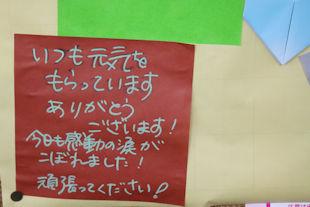 いつも元気を
もらっています
ありがとう
ございます!
今日も感動の涙が
こぼれました!
頑張ってください!